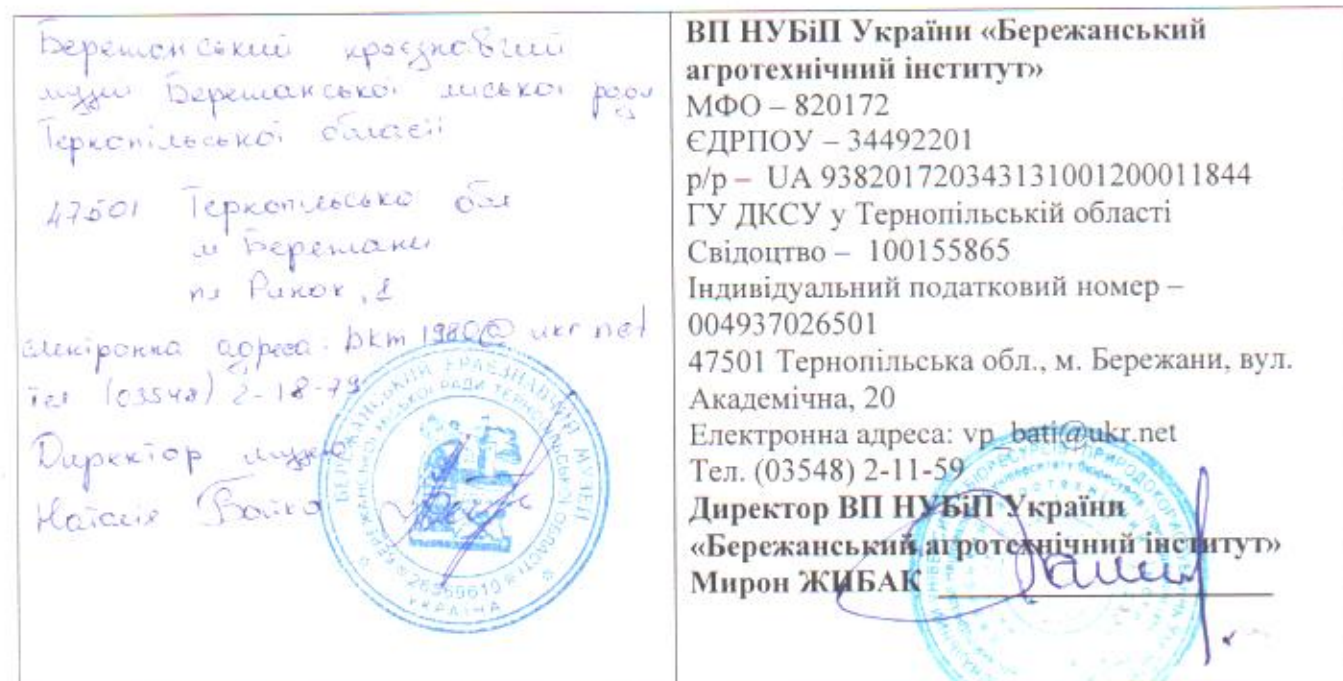 Бережанський краєзнавчий
музей Бережанської міської ради
Тернопільської області
47501 Тернопільська обл
м Бережани
пл Ринок, 1
електронна адреса: bkm1980@ukr.net
тел (03548) 2-18-79
Директор музею
Наталія Бойко
БЕРЕЖАНСЬКИЙ КРАЄЗНАВЧИЙ МУЗЕЙ
БЕРЕЖАНСЬКОЇ МІСЬКОЇ РАДИ ТЕРНОПІЛЬСЬКОЇ ОБЛАСТІ
УКРАЇНА
ВП НУБіП України «Бережанський
агротехнічний інститут»
МФО – 820172
ЄДРПОУ – 34492201
р/р – UA 938201720343131001200011844
ГУ ДКСУ у Тернопільській області
Свідоцтво – 100155865
Індивідуальний податковий номер –
004937026501
47501 Тернопільська обл., м. Бережани, вул.
Академічна, 20
Електронна адреса: vp_bati@ukr.net
Тел. (03548) 2-11-59
Директор ВП НУБіП України
«Бережанський агротехнічний інститут»
Мирон ЖИБАК